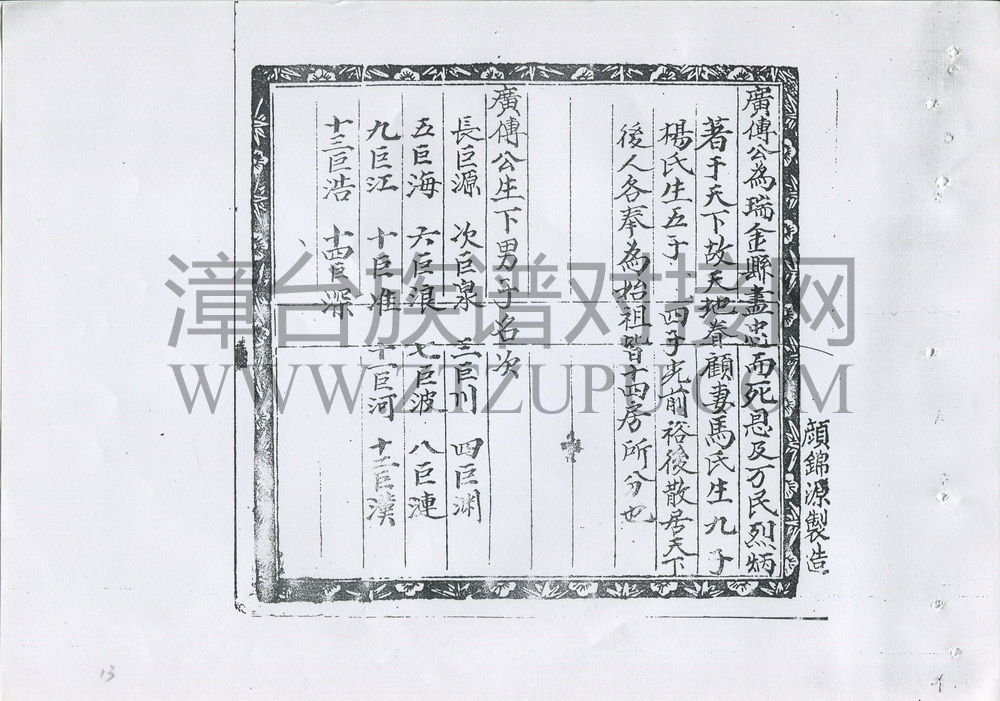 廣傳公為瑞金縣盡忠而死恩及万民烈炳
著于天下故天地眷顧妻馬氏生九子
楊氏生五子 四子光前裕後散居天下
後人各奉為始祖皆十四房所分也
廣傳公生下男子名次
長巨源 次巨泉 三巨川 四巨渊
五巨海 六巨浪 七巨波 八巨漣
九巨江 十巨准 十一巨河 十二巨漢
十三巨浩 十四巨深
顔錦源製造
漳台族谱对接网
WWW.ZTZUPU.COM
13